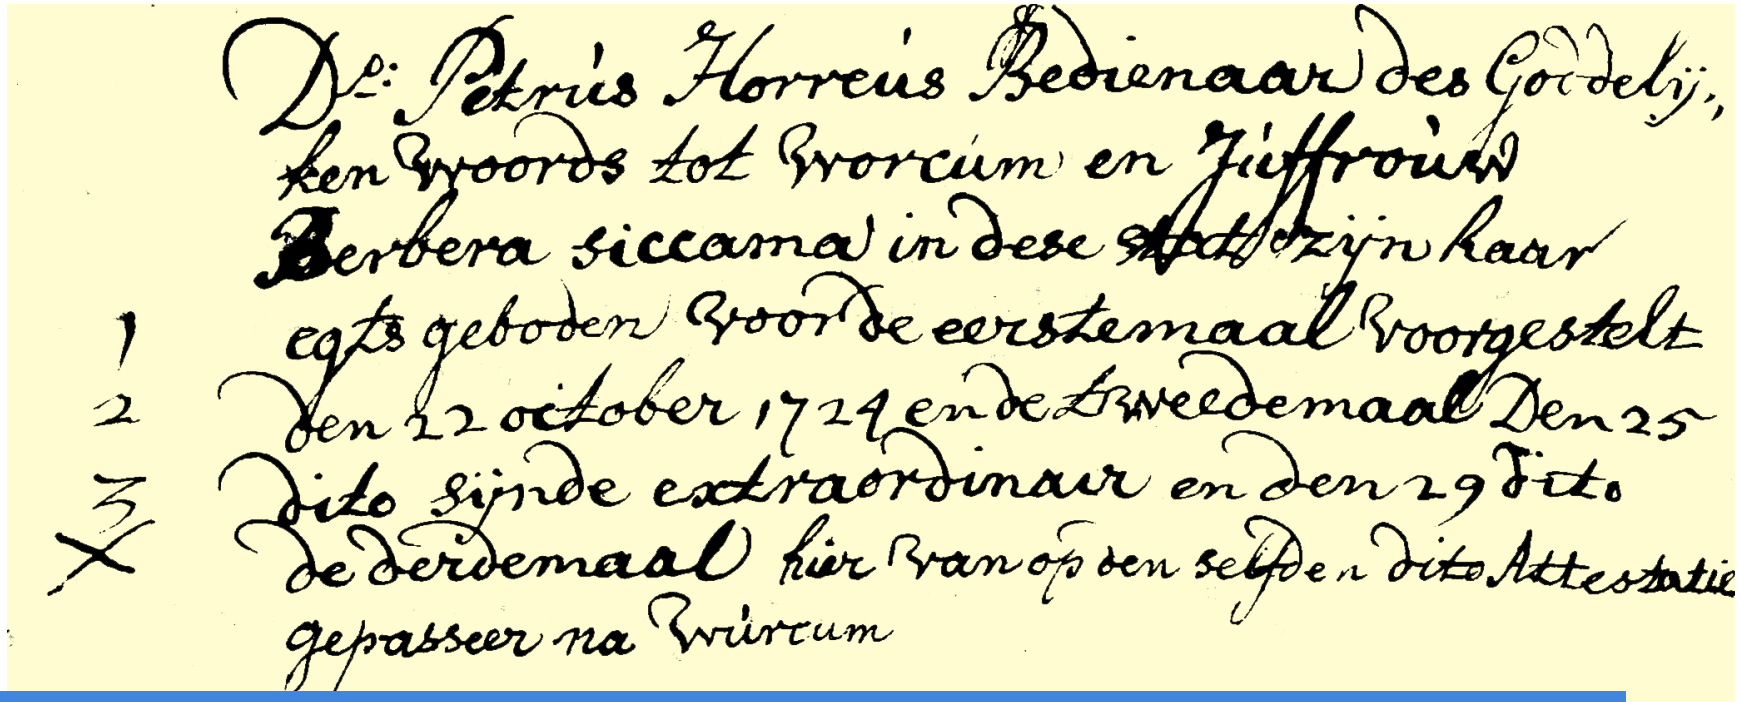 Do: Petrús Horreús Bedienaar des Goddelij„
ken woords tot Worcúm en Júffroúw
Berbera siccama in dese stadt zijn haar
1 eqts geboden voor de eerstemaal voorgestelt
2 den 22 october 1724 en de tweedemaal Den 25
3 dito sijnde extraordinair en den 29 dito
X de derdemaal hier van op den selfden dito Attestatie
gepasseer na Wúrcum